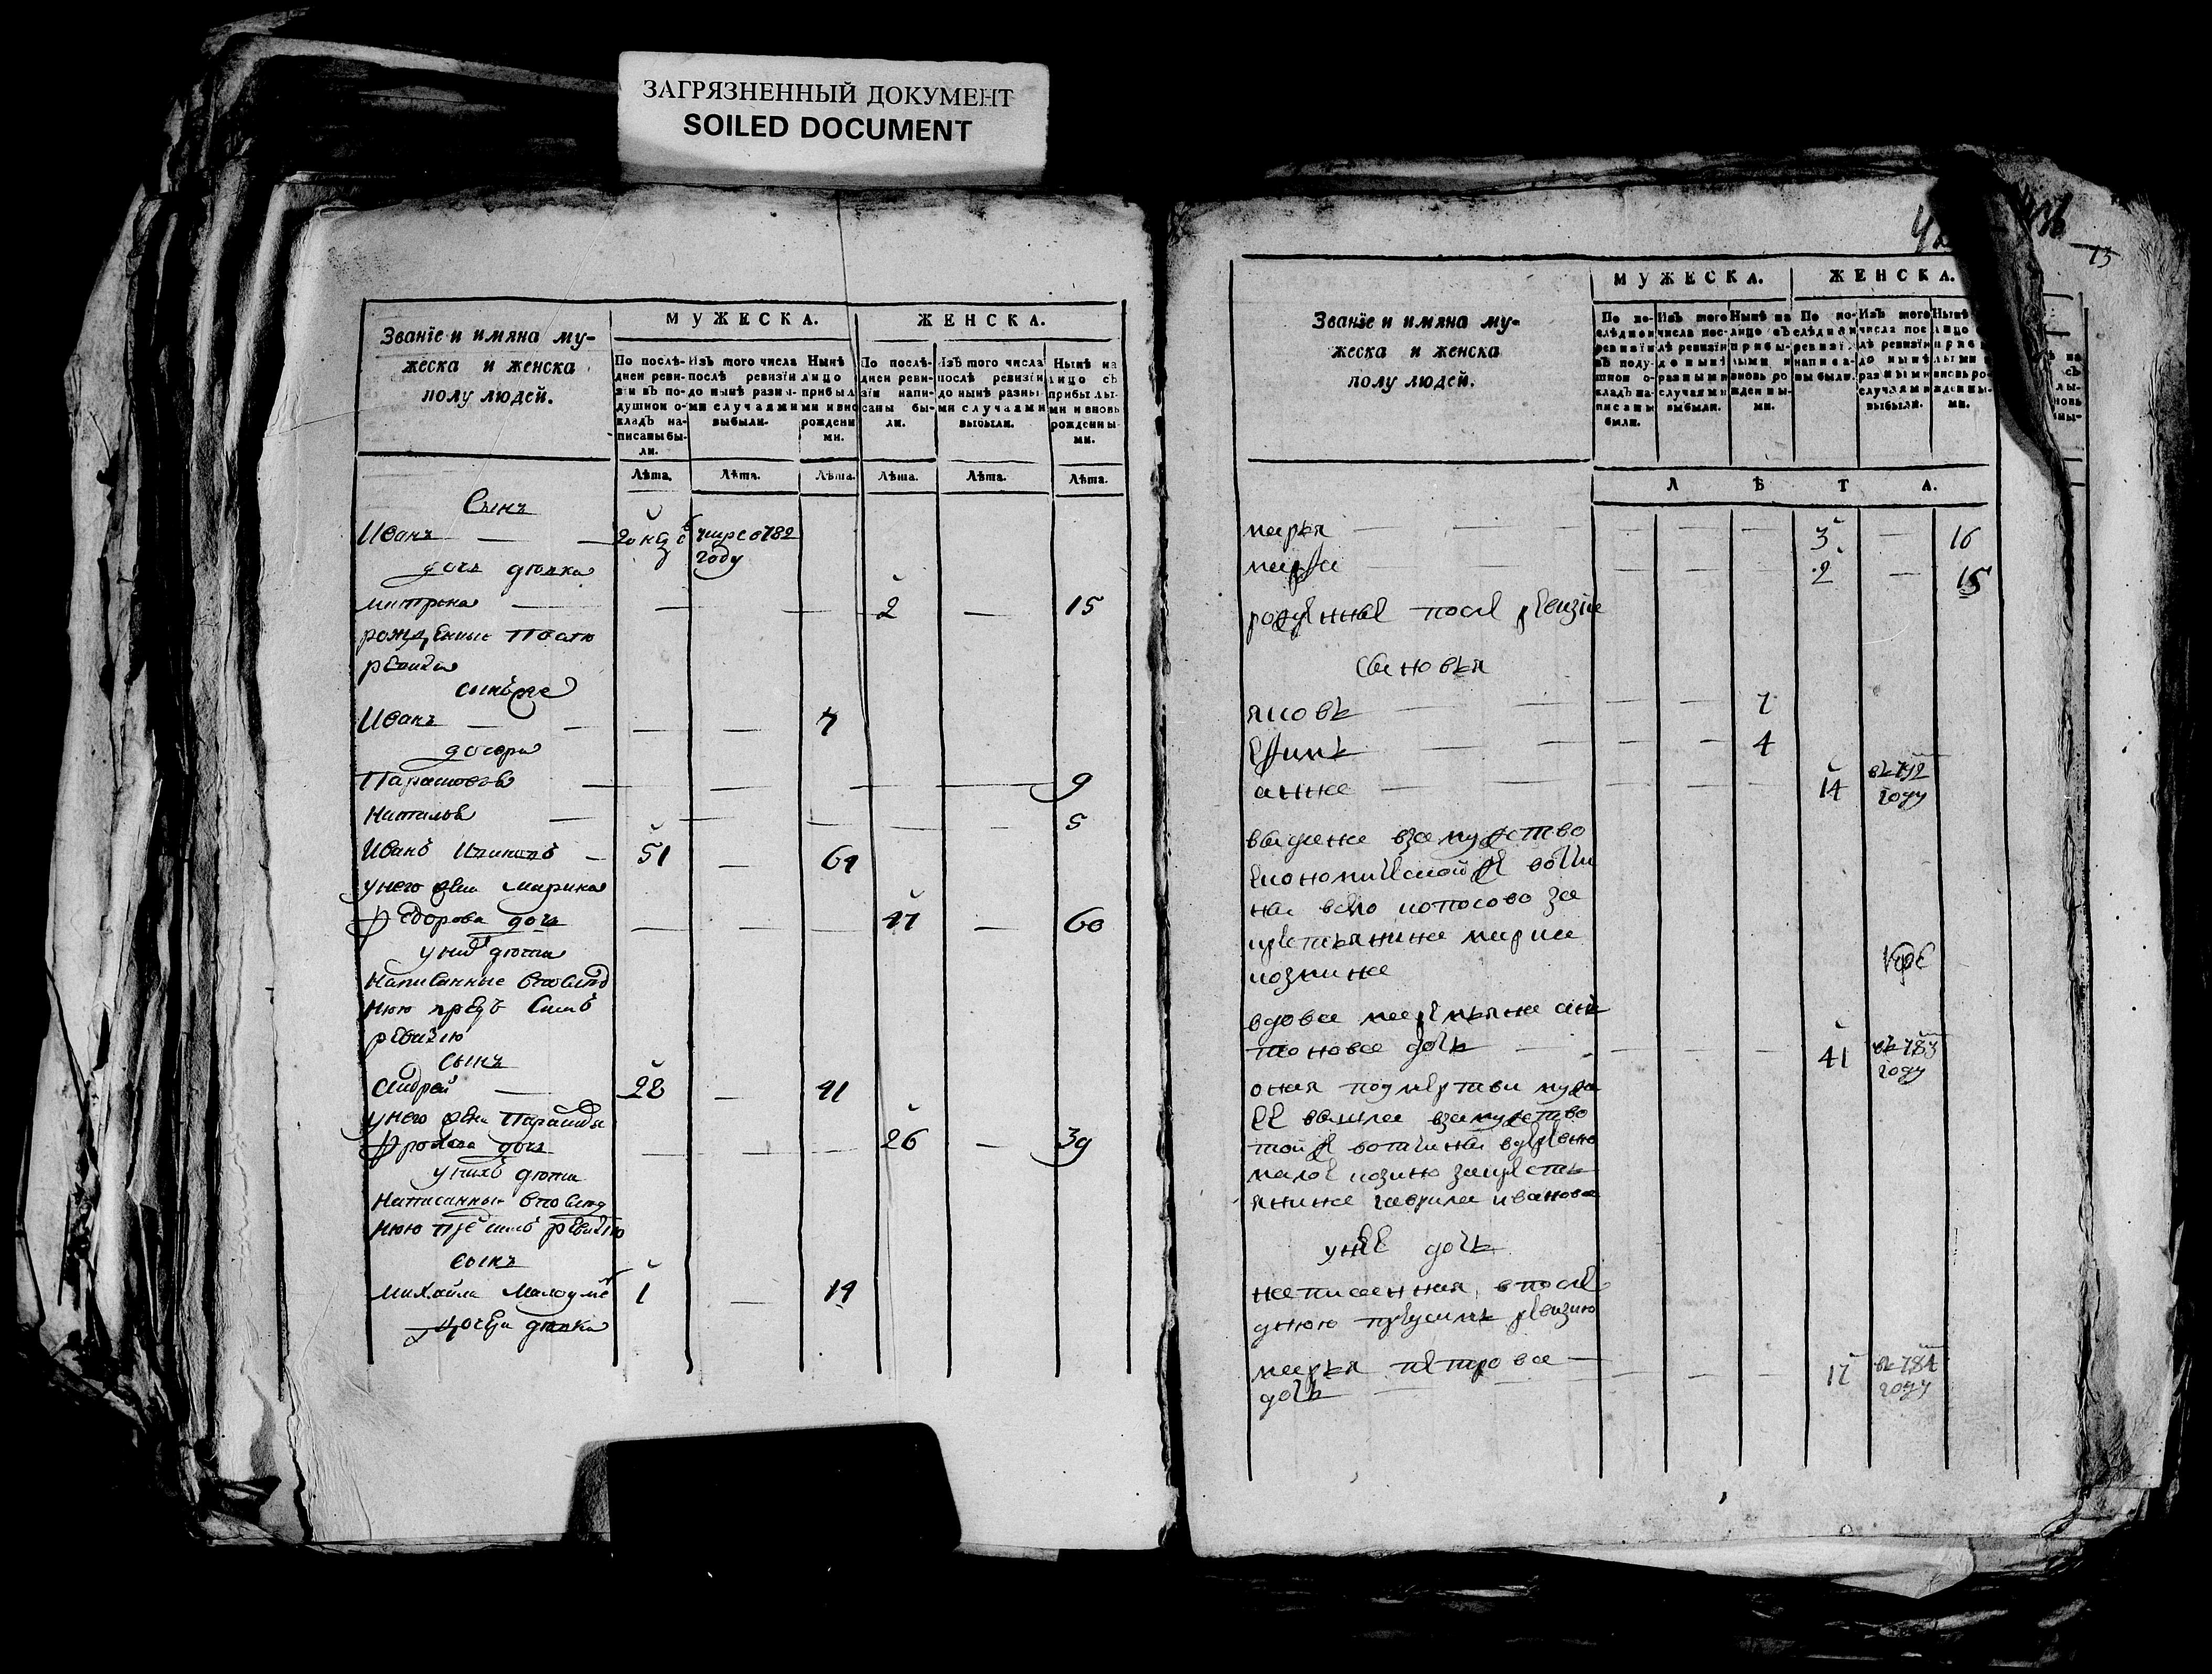 ЗАГРЯЗНЕННЫЙ ДОКУМЕНТ
SOILED DOCUMENT
Званїе и имяна му-
жеска и женска
полу людей.
МУЖЕСКА.
ЖЕНСКА.
По послѣ-
дней реви-
зїи въ по-
душной о-
кладъ на-
писаны бы-
ли.
Изъ того числа
послѣ ревизїи
до нынѣ разны-
ми случаями
выбыли.
Нынѣ
лицо
прибыл
ми и вно
рожденн
ми.
По послѣ-
дней реви-
зїи напи-
саны бы-
ли.
Изъ того числа
послѣ ревизїи
до нынѣ разны
ми случаями
выбыли.
Нынѣ на
лицо съ
прибылы-
ми и вновь
рожденны
ми.
Лѣта. Лѣта. Лѣта. Лѣта. Лѣта. Лѣта.
Сынъ
Иванъ 782
году
дочь дѣвка
матрена 2 15
рожденные после
ревизи
сынъ
Иванъ 7
дочери
Парасковья 9
Наталья 5
Иванъ 51 64
у него жена марина
Федорова дочь 47 60
у них дѣти
написанные впослед
нюю пред сим
ревизию
сынъ
андрей 28 41
у него жена
Фролова дочь 26 39
у них дѣти
написанные впослед
нюю пред сим ревизию
сынъ
михайла 1 14
дочери дѣвки
13
Званїе и имяна му-
жеска и женска
полу людей.
МУЖЕСКА.
ЖЕНСКА.
По по-
слѣдней
ревизїи
въ поду-
шной о-
кладъ на-
писаны
были.
Изъ того
числа пос-
лѣ ревизїи
до нынѣ
разными
случаями
выбыли.
Нынѣ на
лицо съ
прибы-
лыми и
вновь ро
жденны-
ми.
По по-
слѣдней
ревизї.
написа-
ны были.
Изъ того
числа пос
лѣ ревизїи
до нынѣ
разными
случаями
выбыли.
Нынѣ
лицо
приб
лыми
вновь ро-
жденны-
ми.
ЛѢТА.
марья 3 16
марфа 2 15
рожденные после ревизии
сыновья
яковъ 7
ефимъ 4
анна 14 въ 792
году
выдана взамужство
економической же вотчи
ны
крестьянина
вдова маремьяна ан
тонова дочь 41 въ 783
году
оная по смертви мужа
ее вышла взамужство
той же вотчины вдеревню
малое козино за кресть
янина гаврила иванова
у нее дочь
написанная в после
днюю пред сим ревизию
марья петрова 17 въ 784
году
дочь